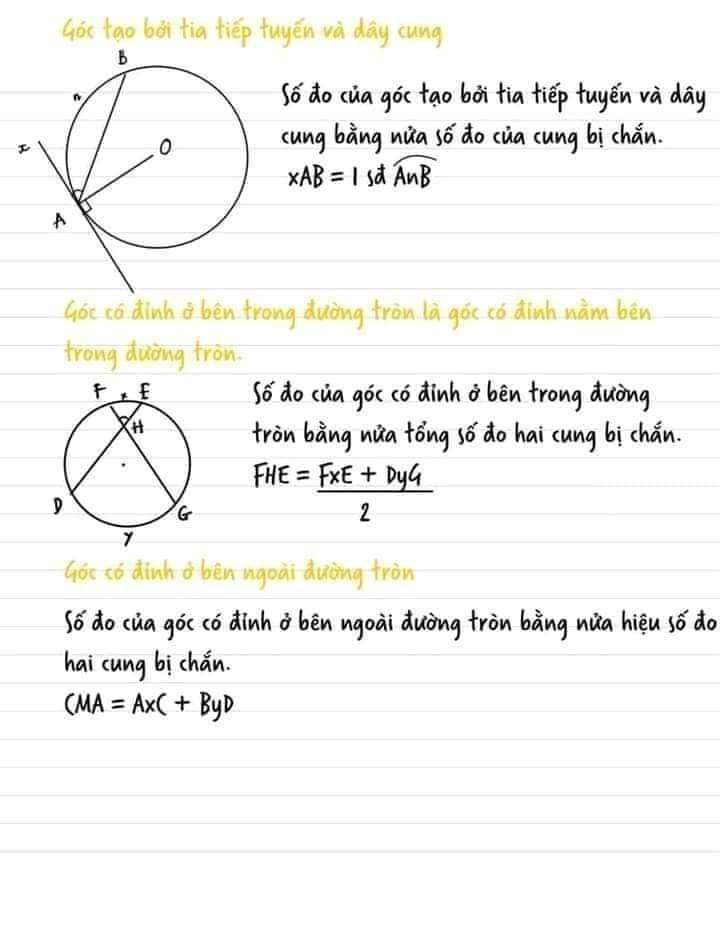 Góc tạo bởi tia tiếp tuyến và dây cung
B
n
x
O
A
Số đo của góc tạo bởi tia tiếp tuyến và dây
cung bằng nửa số đo của cung bị chắn.
xAB = 1 sđ AnB
Góc có đỉnh ở bên trong đường tròn là góc có đỉnh nằm bên
trong đường tròn.
F x E
H
D
G
y
Số đo của góc có đỉnh ở bên trong đường
tròn bằng nửa tổng số đo hai cung bị chắn.
FHE = FxE + DyG
2
Góc có đỉnh ở bên ngoài đường tròn
Số đo của góc có đỉnh ở bên ngoài đường tròn bằng nửa hiệu số đo
hai cung bị chắn.
CMA = AxC + ByD